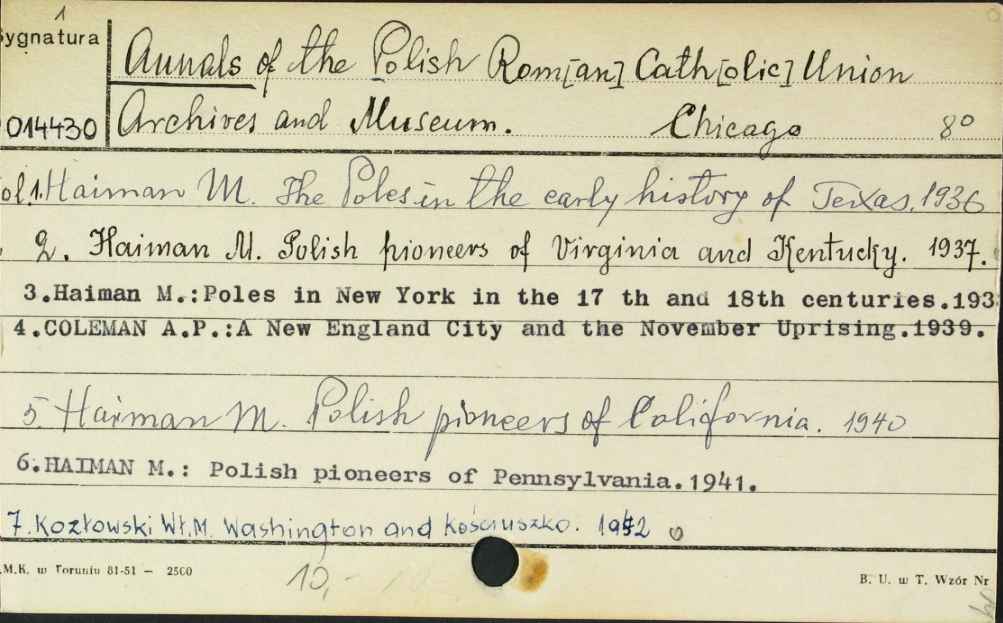 1
ygnatura
Annals of the Polish Rom[an] Cath[olic] Union
014430 Archives and Museum. Chicago 8°
ol.1. Haiman M. The Poles in the early history of Texas. 1936
2. Haiman M. Polish pioneers of Virginia and Kentucky. 1937.
3.Haiman M.:Poles in New York in the 17 th and 18th centuries.193
4.COLEMAN A.P.:A New England City and the November Uprising.1939.
5. Haiman M. Polish pioneers of California. 1940
6.HAIMAN M.: Polish pioneers of Pennsylvania.1941.
7. Kozłowski Wł.M. Washington and Kościuszko. 1942
.M.K. w Toruniu 81-51 — 2500
10,-
B. U. w T. Wzór Nr